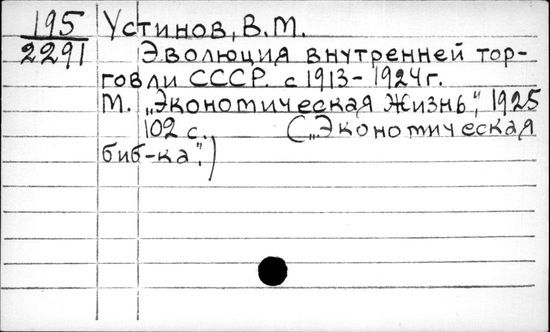 195 Устинов, В.М.
2291 Эволюция внутренней тор-
говли СССР. с 1913-1924г.
М. „Экономическая Жизнь", 1925
102 с. („Экономическая
биб-ка".)